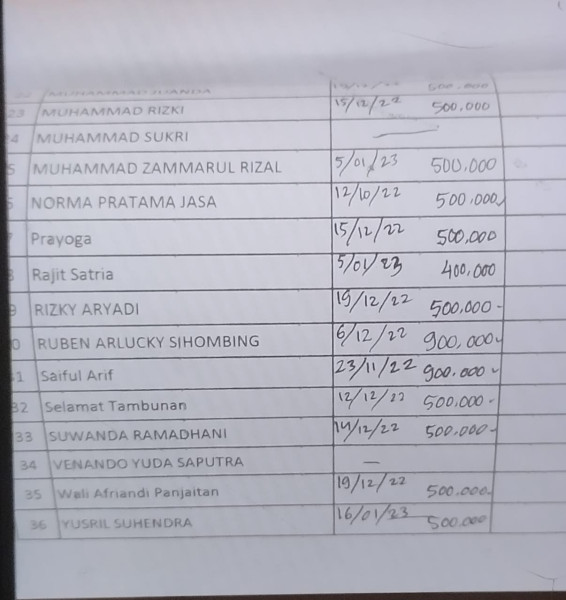 MUHAMMAD JUANDA 500.000
23 MUHAMMAD RIZKI 15/12/22 500.000
4 MUHAMMAD SUKRI —
5 MUHAMMAD ZAMMARUL RIZAL 5/01/23 500.000
6 NORMA PRATAMA JASA 12/10/22 500.000
7 Prayoga 15/12/22 500.000
8 Rajit Satria 5/01/23 400.000
9 RIZKY ARYADI 19/12/22 500.000 -
0 RUBEN ARLUCKY SIHOMBING 6/12/22 900.000
31 Saiful Arif 23/11/22 900.000
32 Selamat Tambunan 12/12/22 500.000 -
33 SUWANDA RAMADHANI 14/12/22 500.000 -
34 VENANDO YUDA SAPUTRA —
35 Wali Afriandi Panjaitan 19/12/22 500.000
36 YUSRIL SUHENDRA 16/01/23 500.000